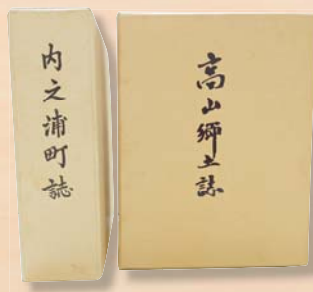 内之浦町誌
高山郷土誌